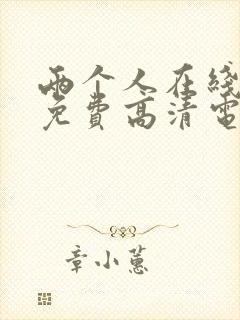 两个人在线
免费高清电
章小蕙